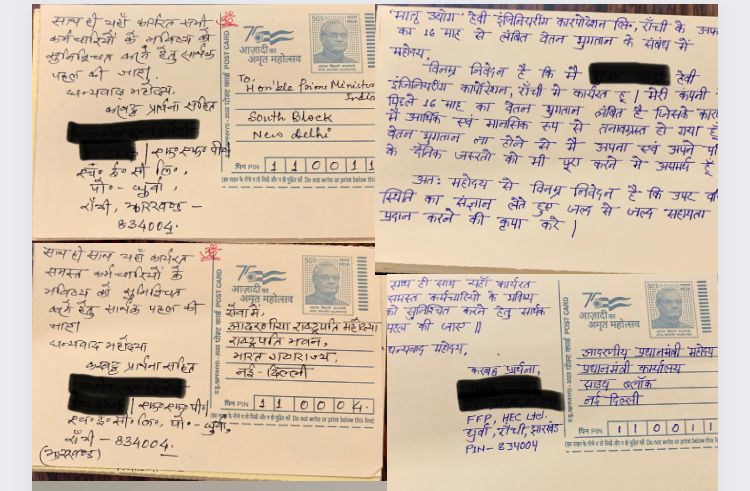 साथ ही यहाँ कार्यरत सभी
कर्मचारियों के भविष्य को
सुनिश्चित करने हेतु सार्थक
पहल की जाए।
धन्यवाद महोदय
करबद्ध प्रार्थना सहित
एफ॰एफ॰पी॰
एच॰ ई॰ सी लि॰,
पो॰ - धुर्वा,
राँची, झारखण्ड -
834004.
75
आज़ादी का
अमृत महोत्सव
पोस्ट कार्ड POST CARD
To,
Hon'ble Prime Minister
India
South Block
New Delhi
पिन PIN 1 1 0 0 1 1
Do not write or print below this
"मातृ उद्योग" हेवी इंजिनियरींग कारपोरेशन लि॰, राँची के
का 16 माह से लंबित वेतन भुगतान के संबंध में
महोदय,
विनम्र निवेदन है कि मैं हेवी
इंजिनियरींग कार्पोरेशन, राँची में कार्यरत हूँ। मेरी कंपनी
पिछले 16 माह का वेतन भुगतान लंबित है जिसके
मैं आर्थिक एवं मानसिक रूप से तनावग्रस्त हो गया हूँ
वेतन भुगतान ना होने से मैं अपना एवं अपने
के दैनिक जरूरतों को भी पूरा करने में असमर्थ हूँ
अतः महोदय से विनम्र निवेदन है कि उपर
स्थिति का संज्ञान लेते हुए जल्द से जल्द सहायता
प्रदान करने की कृपा करे।
साथ ही साथ यहाँ कार्यरत
समस्त कर्मचारियों के
भविष्य को सुनिश्चित
करने हेतु सार्थक पहल की
जाए।
धन्यवाद महोदया
करबद्ध प्रार्थना सहित
एफ॰एफ॰पी॰
एच॰ ई॰ सी॰ लि॰, पो॰ - धुर्वा,
राँची - 834004.
(झारखण्ड)
75
आज़ादी का
अमृत महोत्सव
पोस्ट कार्ड POST CARD
सेवा में,
आदरणीया राष्ट्रपति महोदया
राष्ट्रपति भवन,
भारत गणराज्य,
नई - दिल्ली
पिन PIN 1 1 0 0 0 4.
Do not write or print below this line
साथ ही साथ यहाँ कार्यरत
समस्त कर्मचारियों के भविष्य
को सुनिश्चित करने हेतु सार्थक
पहल की जाए॥
धन्यवाद महोदय,
करबद्ध प्रार्थना,
FFP, HEC Ltd.
धुर्वा, राँची, झारखंड
PIN - 834004
75
आज़ादी का
अमृत महोत्सव
पोस्ट कार्ड POST CARD
आदरणीय प्रधानमंत्री महोदय
प्रधानमंत्री कार्यालय
साउथ ब्लॉक
नई दिल्ली
पिन PIN 1 1 0 0 1 1
Do not write or print below this line